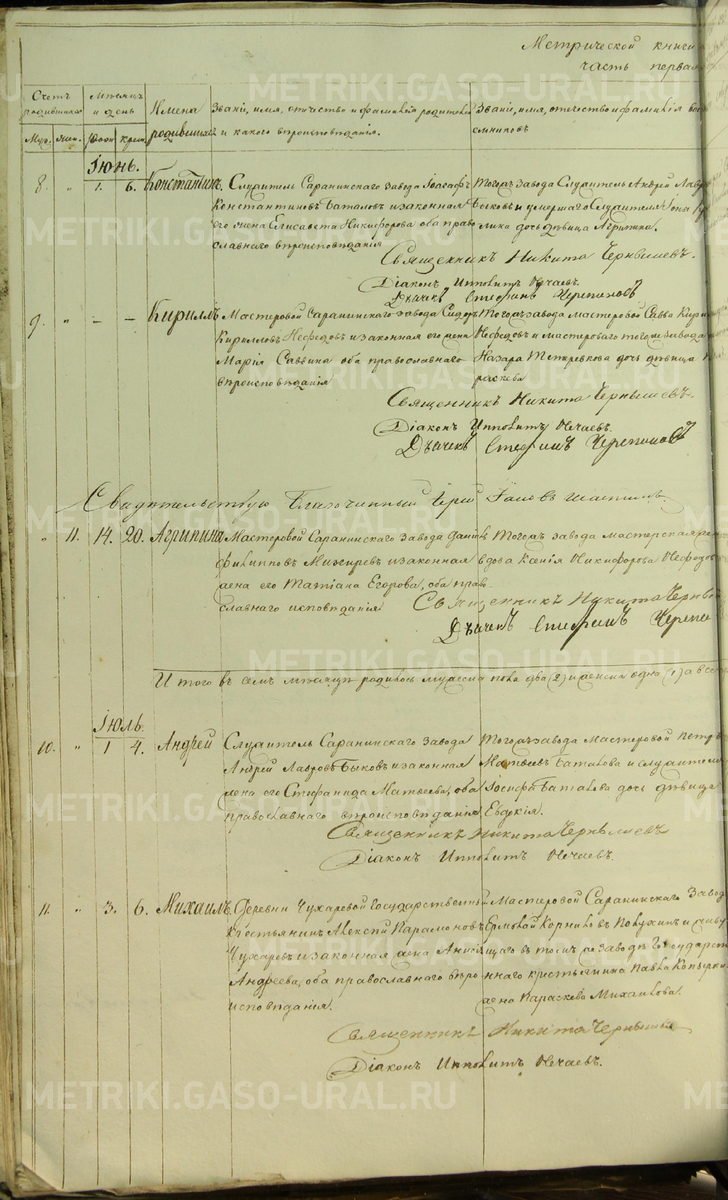 Метрической книги
часть первая
Счетъ родившихся
Муж. Жен.
Мѣсяцъ и день
рожд. крещ.
Имена родившихся
Званіе, имя, отчество и фамилія родителей
и какого вѣроисповѣданія.
Званіе, имя, отечество и фамилія
Іюнь.
8. " 1. 6. Константинъ.
Служитель Саранинскаго завода Іоасафъ
Константиновъ Баталовъ и законная
его жена Елисавета Никифорова оба право
славнаго вѣроисповѣданія
Тогожъ завода Служитель Андрей Лавр
Быковъ и умершаго Служителя
дочь дѣвица Агрипина.
Священникъ Никита Чернышевъ.
Діаконъ Ипполитъ Нечаевъ.
Дьячекъ Стефанъ Черепановъ
9. " — — Кириллъ
Мастеровой Саранинскаго завода Сидоръ
Кирилловъ Нефедовъ и законная его жена
Марія Саввина оба православнаго
вѣроисповѣданія
Тогожъ завода мастеровой Савво Кирил
Нефедовъ и мастероваго тогоже завода
Назара Тетеревкова дочь дѣвица
раскева
Священникъ Никита Чернышевъ.
Діаконъ Ипполитъ Нечаевъ.
Дьячекъ Стефанъ Черепановъ
Свидѣтельствую Благочинный Іерей Іаковъ
" 11. 14. 20. Агрипина
Мастеровой Саранинскаго завода Данiилъ
Филипповъ Михиревъ и законная
жена его Татіана Егорова, оба прав
славнаго исповѣданія
Тогожъ завода мастерская
вдова Ксенія Никифорова Нефедова
Священникъ Никита Черныш
Дьячекъ Стефанъ Черепа
И того въ семъ мѣсяцѣ родилось мужеска пола два (2) и женска одна (1) а все
Іюль.
10. " 1 4. Андрей
Служитель Саранинскаго завода
Андрей Лавровъ Быковъ и законная
жена его Стефанида Матвеева, оба
православнаго вѣроисповѣданія
Тогожъ завода Мастеровой Петръ
Матвеевъ Баталова и служителя
Іосифа Баталова дочь дѣвица
Евдокія.
Священникъ Никита Чернышевъ
Діаконъ Ипполитъ Нечаевъ.
11. " 3. 6. Михаилъ.
Деревни Чухаревой Государственный
крестьянинъ Алексѣй Парамоновъ
Чухаревъ и законная жена
Андреева, оба православнаго вѣро
исповѣданія.
Мастеровой Саранинскаго Завод
Ермолай Корниловъ и живу
щаго въ томъ же заводѣ Государст
веннаго крестьянина Павла Копырки
жена Параскева Михайлова.
Священникъ Никита Чернышевъ
Діаконъ Ипполитъ Нечаевъ.
METRIKI.GASO-URAL.RU